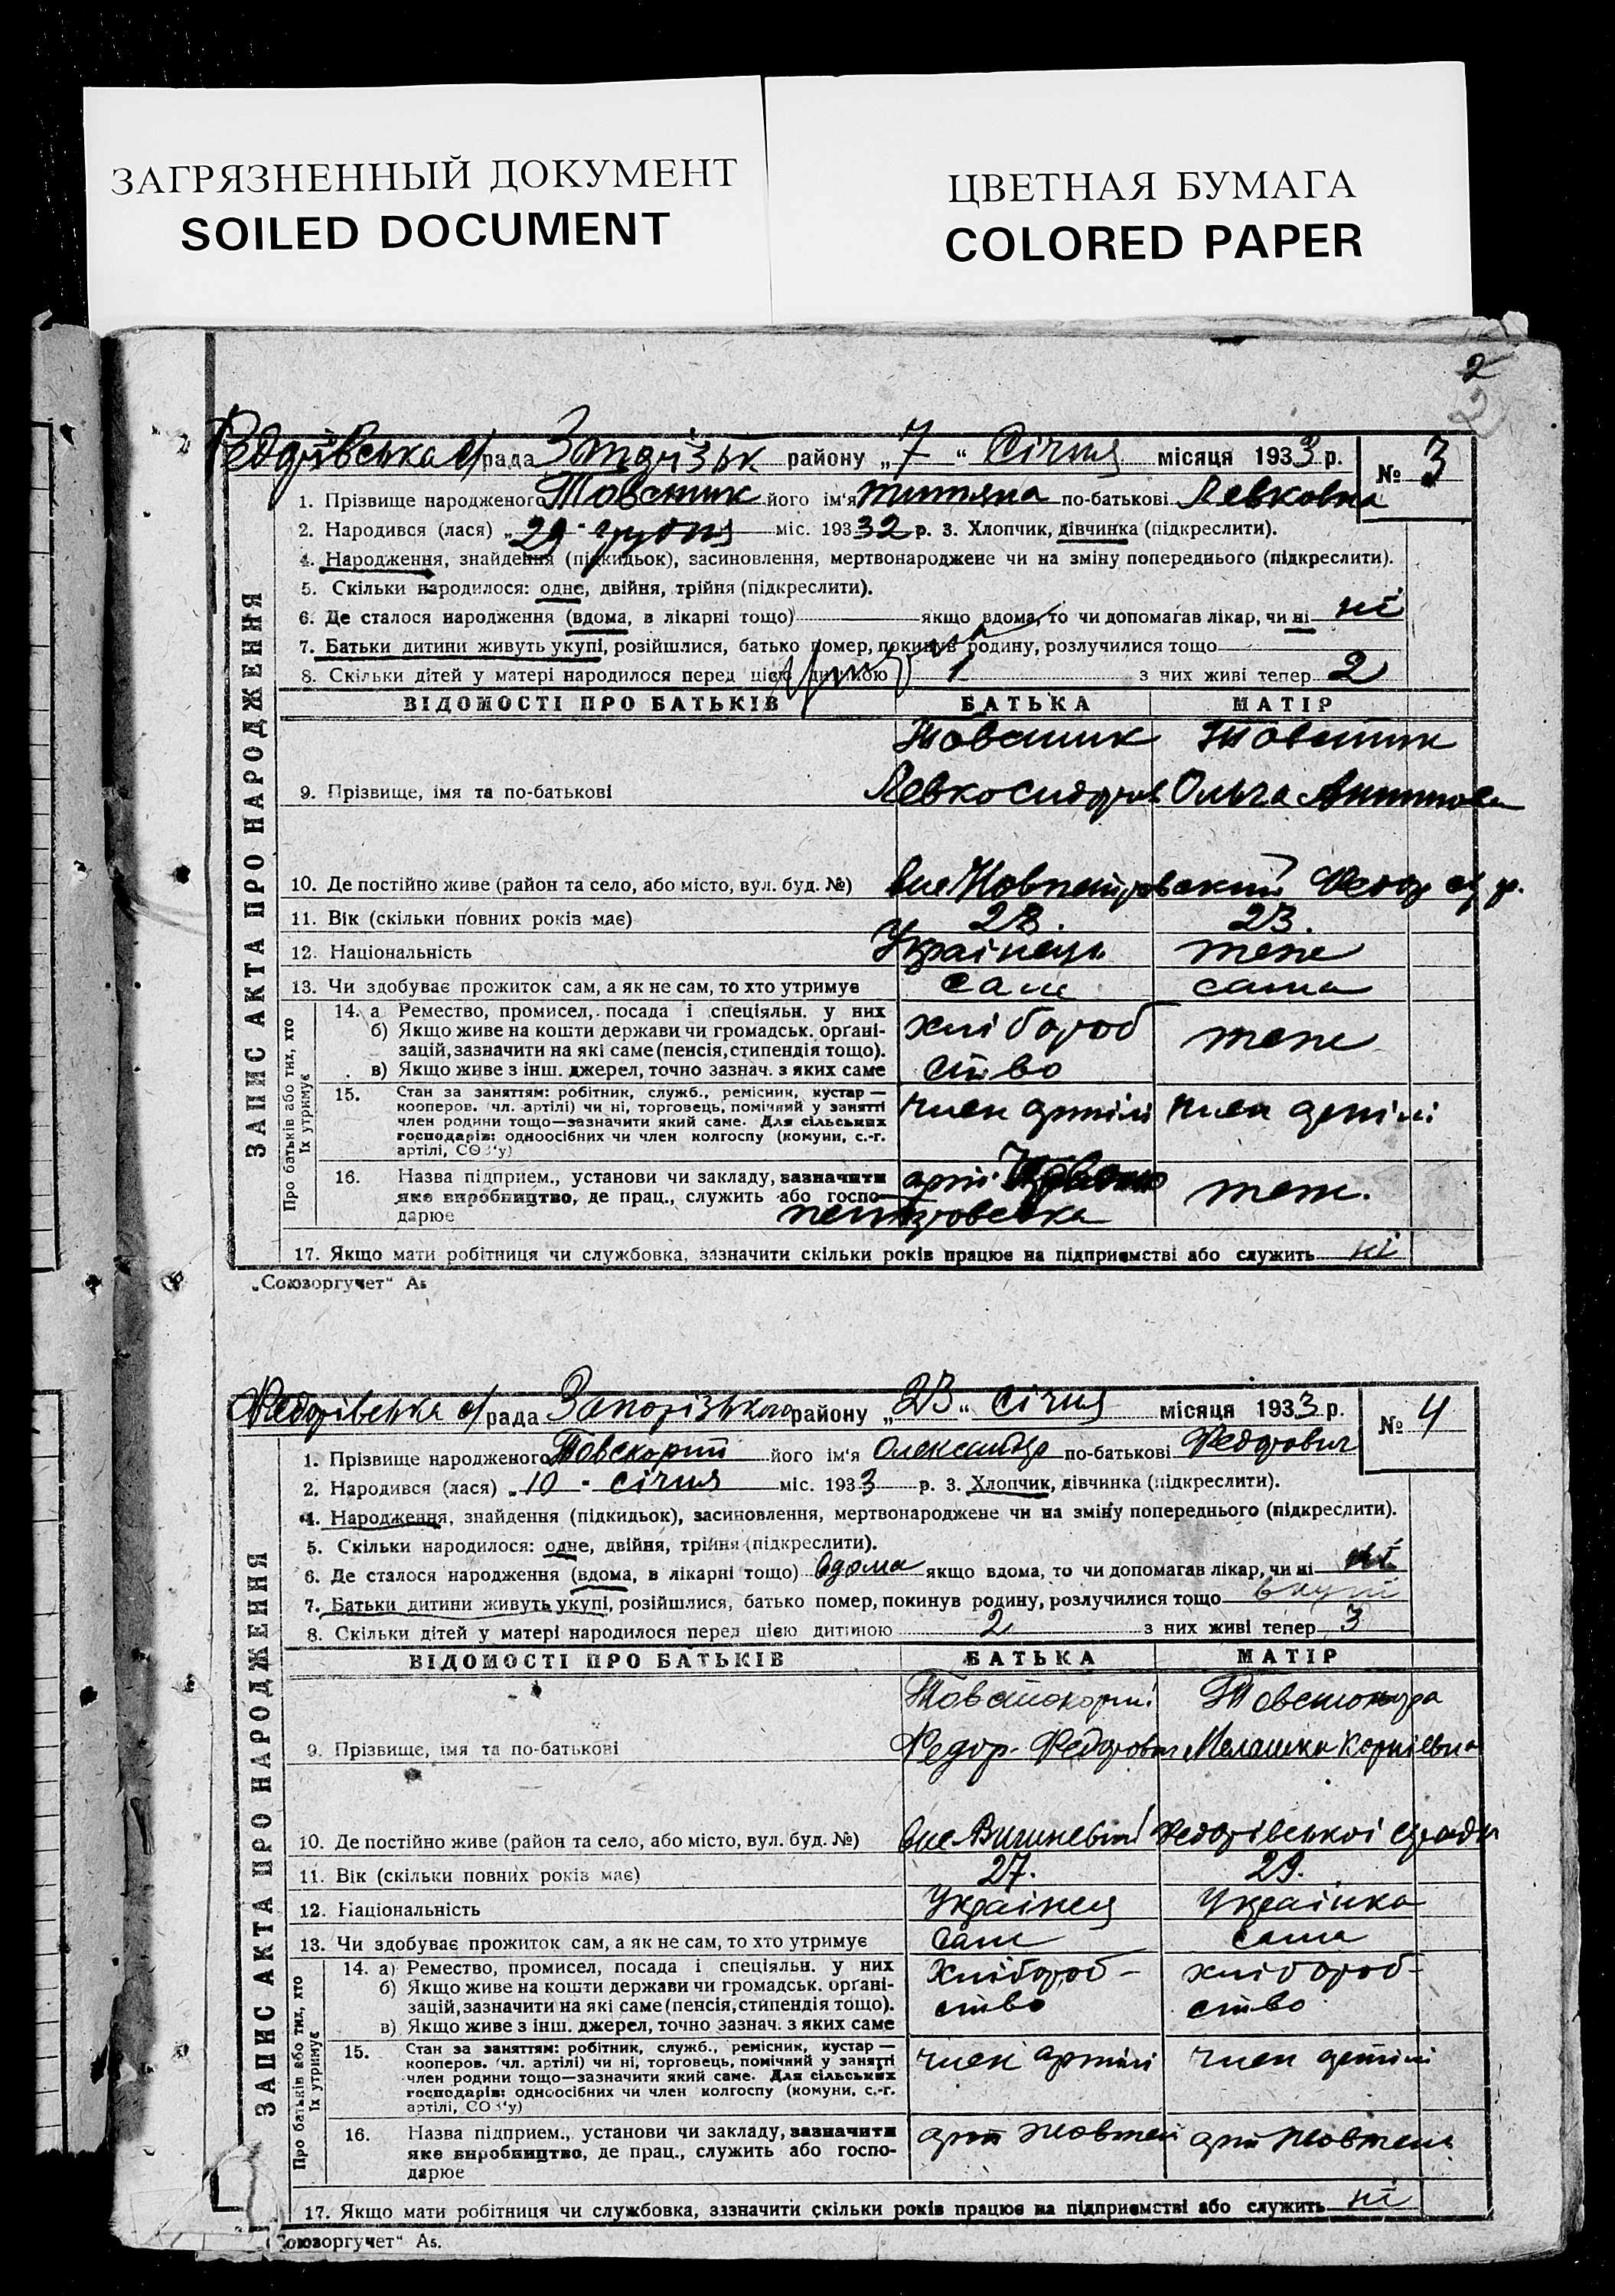 ЗАГРЯЗНЕННЫЙ ДОКУМЕНТ
SOILED DOCUMENT
ЦВЕТНАЯ БУМАГА
COLORED PAPER
2
Федорівська с/рада Запорізьк району „7“ Січня місяця 1933 р. № 3
1. Прізвище народженого Товстик його ім'я Титяна по-батькові Левковна
2. Народився (лася) „29 - грудня міс. 193 32 р. 3. Хлопчик, дівчинка (підкреслити).
4. Народження, знайдення (підкидьок), засиновлення, мертвонароджене чи на зміну попереднього (підкреслити).
5. Скільки народилося: одне, двійня, трійня (підкреслити).
6. Де сталося народження (вдома, в лікарні тощо) якщо вдома, то чи допомагав лікар, чи ні ні
7. Батьки дитини живуть укупі, розійшлися, батько помер, покинув родину, розлучилися тощо
8. Скільки дітей у матері народилося перед цією дитиною 1 з них живі тепер 2
ВІДОМОСТІ ПРО БАТЬКІВ БАТЬКА МАТІР
Товстик Товстик
9. Прізвище, імя та по-батькові Левко Сидоров Ольга
10. Де постійно живе (район та село, або місто, вул. буд. №) вис Федор с/ р.
11. Вік (скільки повних років має) 28. 23.
12. Національність Українець теж
13. Чи здобуває прожиток сам, а як не сам, то хто утримує сам сама
14. а Ремество, промисел, посада і спеціяльн. у них
б) Якщо живе на кошти держави чи громадськ. орґані-
зацій, зазначити на які саме (пенсія, стипендія тощо).
в) Якщо живе з інш. джерел, точно зазнач. з яких саме
хлібороб
ство
теж
15. Стан за заняттям: робітник, служб., ремісник, кустар —
кооперов. (чл. артілі) чи ні, торговець, помічний у занятті
член родини тощо—зазначити який саме. Для сільських
господарів: одноосібних чи член колгоспу (комуни, с.-г.
артілі, СОЗ'у)
член артілі член артілі
16. Назва підприєм., установи чи закладу, зазначити
яке виробництво, де прац., служить або госпо-
дарює
арт.
петровська
теж.
17. Якщо мати робітниця чи службовка, зазначити скільки років працює на підприємстві або служить ні
ЗАПИС АКТА ПРО НАРОДЖЕННЯ
Про батьків або тих, хто
їх утримує
„Союзоргучет“ А₅
Федорівська с/рада Запорізького району „23“ Січня місяця 1933 р. № 4
1. Прізвище народженого Товскорий його ім'я Олександр по-батькові Федорович
2. Народився (лася) „10 - січня міс. 1933 р. 3. Хлопчик, дівчинка (підкреслити).
4. Народження, знайдення (підкидьок), засиновлення, мертвонароджене чи на зміну попереднього (підкреслити).
5. Скільки народилося: одне, двійня, трійня (підкреслити).
6. Де сталося народження (вдома, в лікарні тощо) вдома якщо вдома, то чи допомагав лікар, чи ні ні
7. Батьки дитини живуть укупі, розійшлися, батько помер, покинув родину, розлучилися тощо вкупі
8. Скільки дітей у матері народилося перед цією дитиною 2 з них живі тепер 3
ВІДОМОСТІ ПРО БАТЬКІВ БАТЬКА МАТІР
Товстокорий
9. Прізвище, імя та по-батькові Федор Федорович Мелашка Корніевна
10. Де постійно живе (район та село, або місто, вул. буд. №) вис Вишневий Федорівської с/ради
11. Вік (скільки повних років має) 27. 29.
12. Національність Українец Українка
13. Чи здобуває прожиток сам, а як не сам, то хто утримує Сам сама
14. а) Ремество, промисел, посада і спеціяльн. у них
б) Якщо живе на кошти держави чи громадськ. орґані-
зацій, зазначити на які саме (пенсія, стипендія тощо).
в) Якщо живе з інш. джерел, точно зазнач. з яких саме
Хлібороб-
ство
хлібороб-
ство
15. Стан за заняттям: робітник, служб., ремісник, кустар —
кооперов. (чл. артілі) чи ні, торговець, помічний у занятті
член родини тощо—зазначити який саме. Для сільських
господарів: одноосібних чи член колгоспу (комуни, с.-г.
артілі, СОЗ'у)
член артілі член артілі
16. Назва підприєм., установи чи закладу, зазначити
яке виробництво, де прац., служить або госпо-
дарює
арт Жовтень арт Жовтень
17. Якщо мати робітниця чи службовка, зазначити скільки років працює на підприємстві або служить ні
ЗАПИС АКТА ПРО НАРОДЖЕННЯ
Про батьків або тих, хто
їх утримує
оюзоргучет“ А₅.